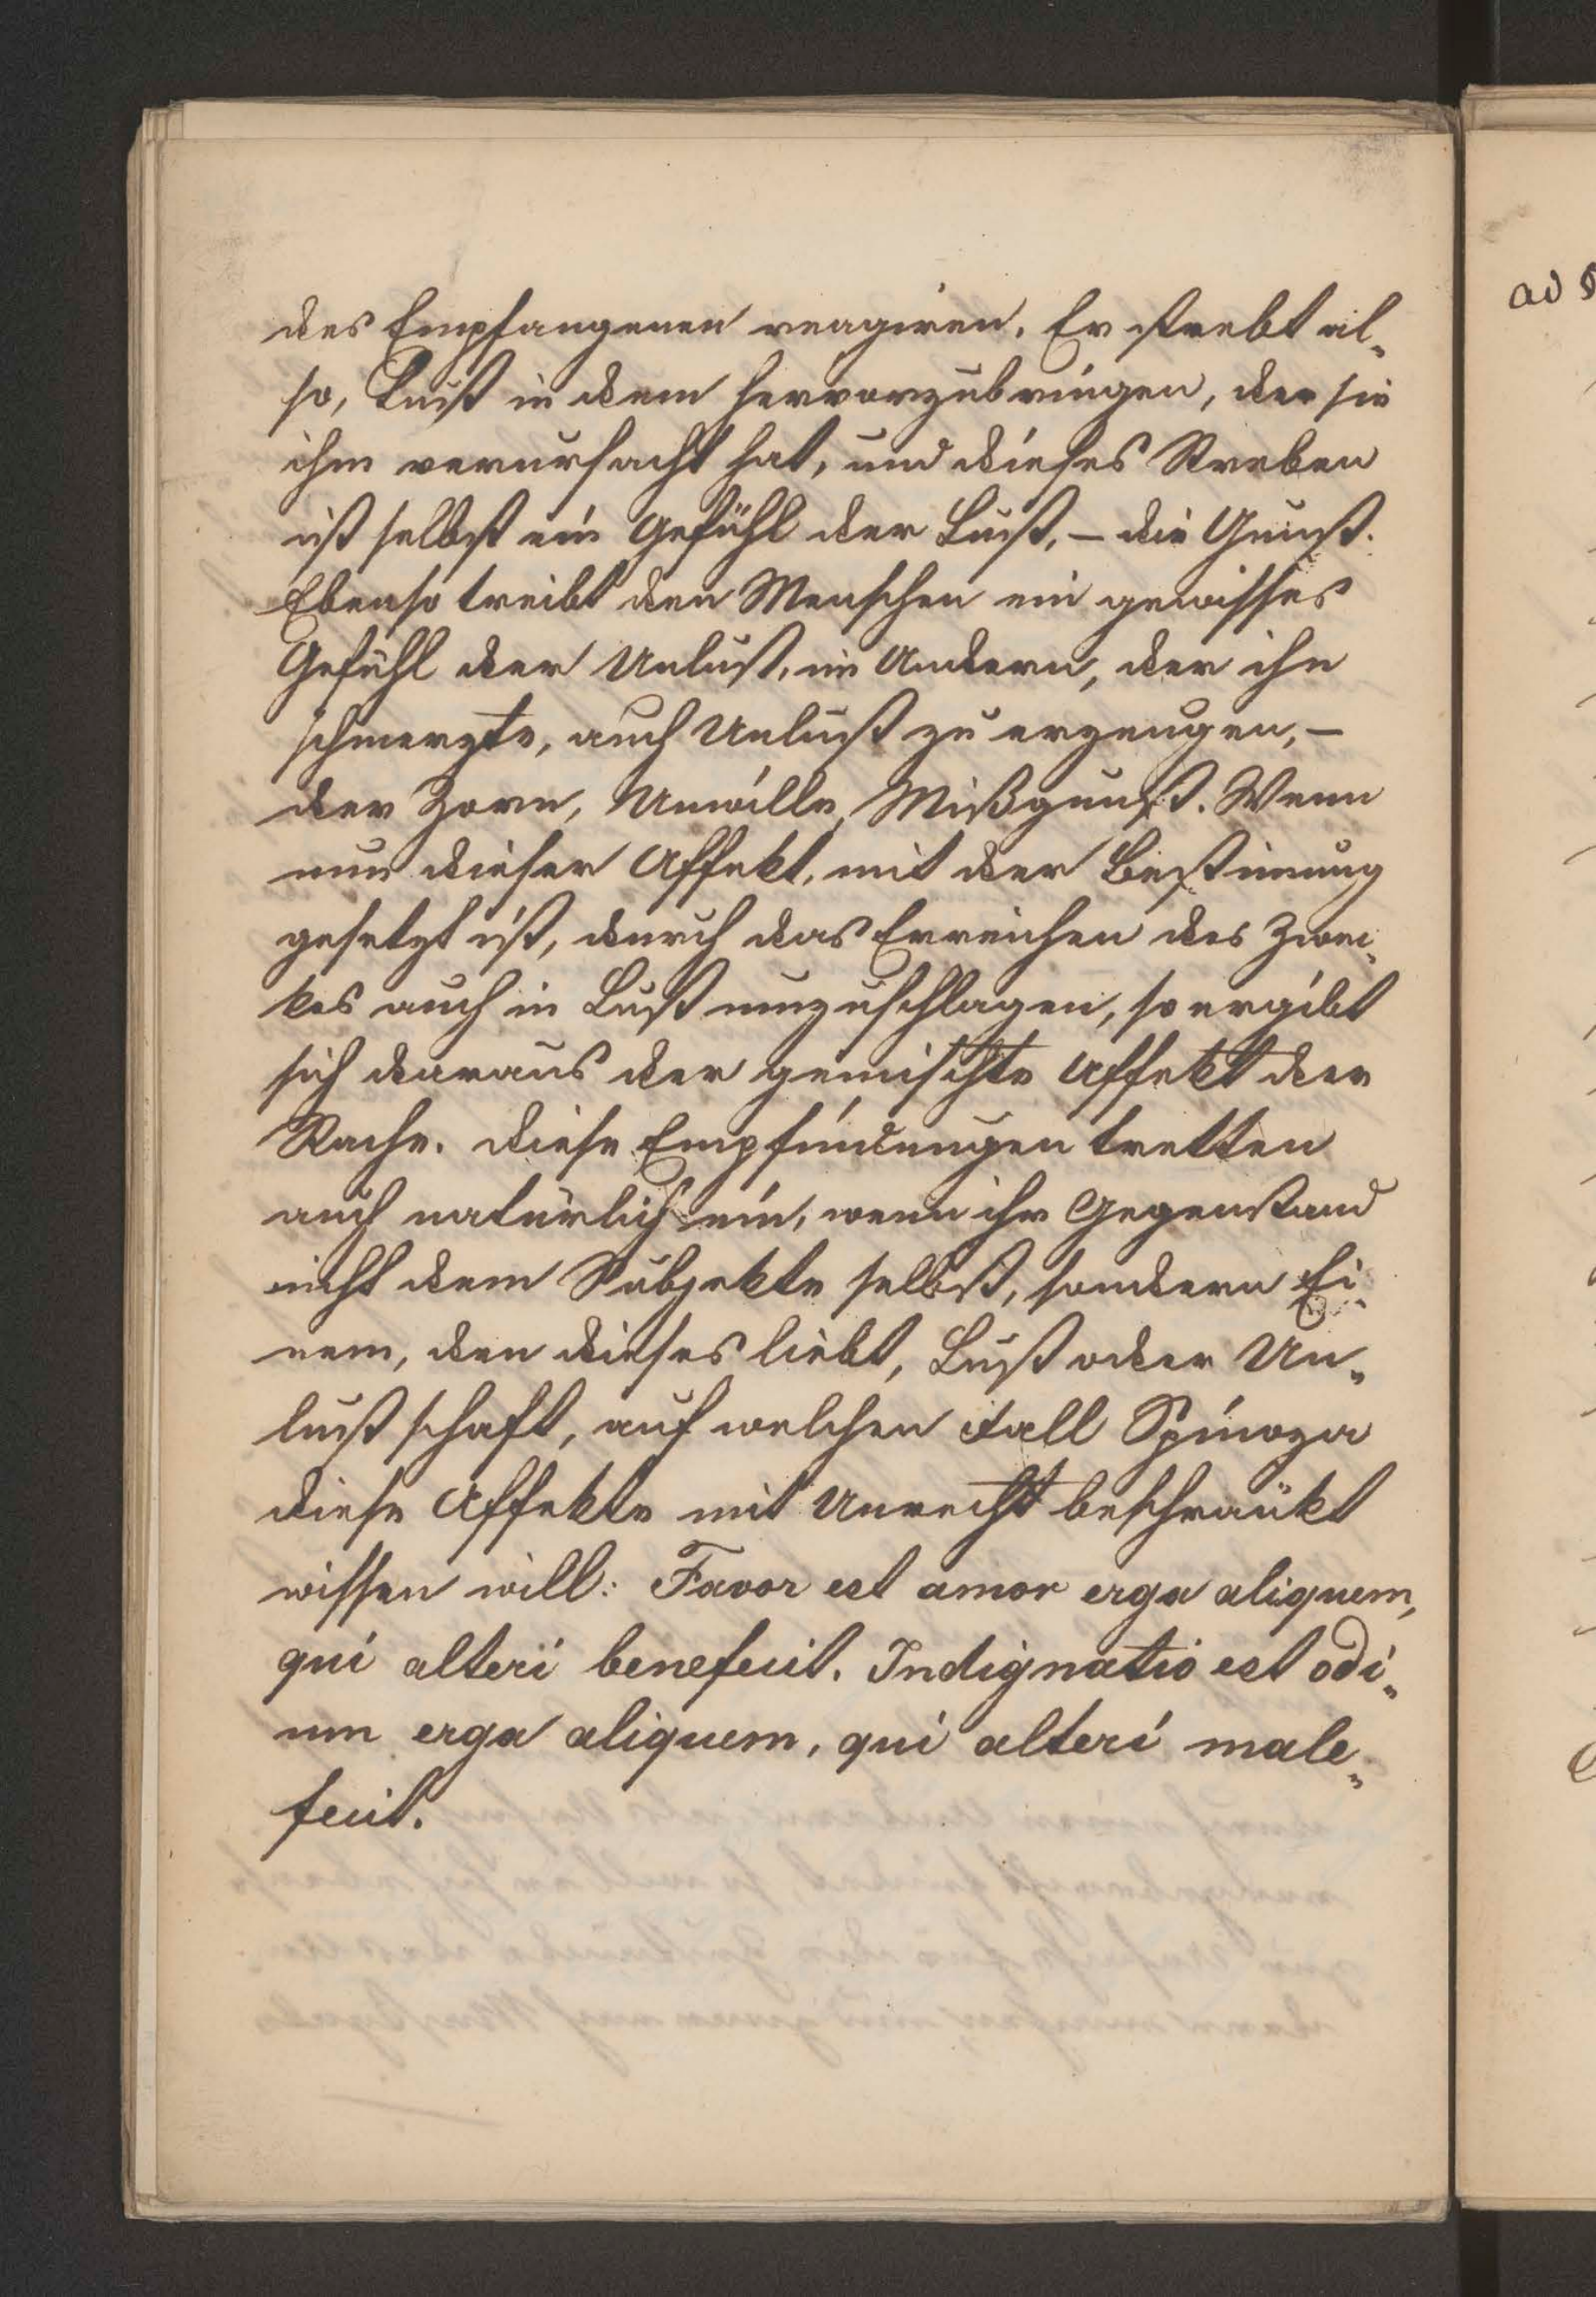 des Empfangenen reagiren. Er strebt al-
so, Lust in dem hervorzubringen, der sie
ihm verursacht hat, und dieses Streben
ist selbst ein Gefühl der Lust, – die Gunst.
Ebenso treibt den Menschen ein gewisses
Gefühl der Unlust, im Andern, der ihn
schmerzte, auch Unlust zu erzeugen, –
der Zorn, Unwille, Mißgunst. Wenn
nun dieser Affekt, mit der Bestimung
gesetzt ist, durch das Erreichen des Zwe-
kes auch in Lust umzuschlagen, so ergibt
sich daraus der gemischte Affekt der
Rache. Diese Empfindungen tretten
auch natürlich ein, wenn ihr Gegenstand
nicht dem Subjekte selbst, sondern Ei-
nem, den dieses liebt, Lust oder Un-
lust schafft, auf welchen Fall Spinoza
diese Affekte mit Unrecht beschränkt
wissen will: Favor est amor erga aliquem,
qui alteri benefecit. Indignatio est odi-
um erga aliquem, qui alteri male-
fecit.
ad